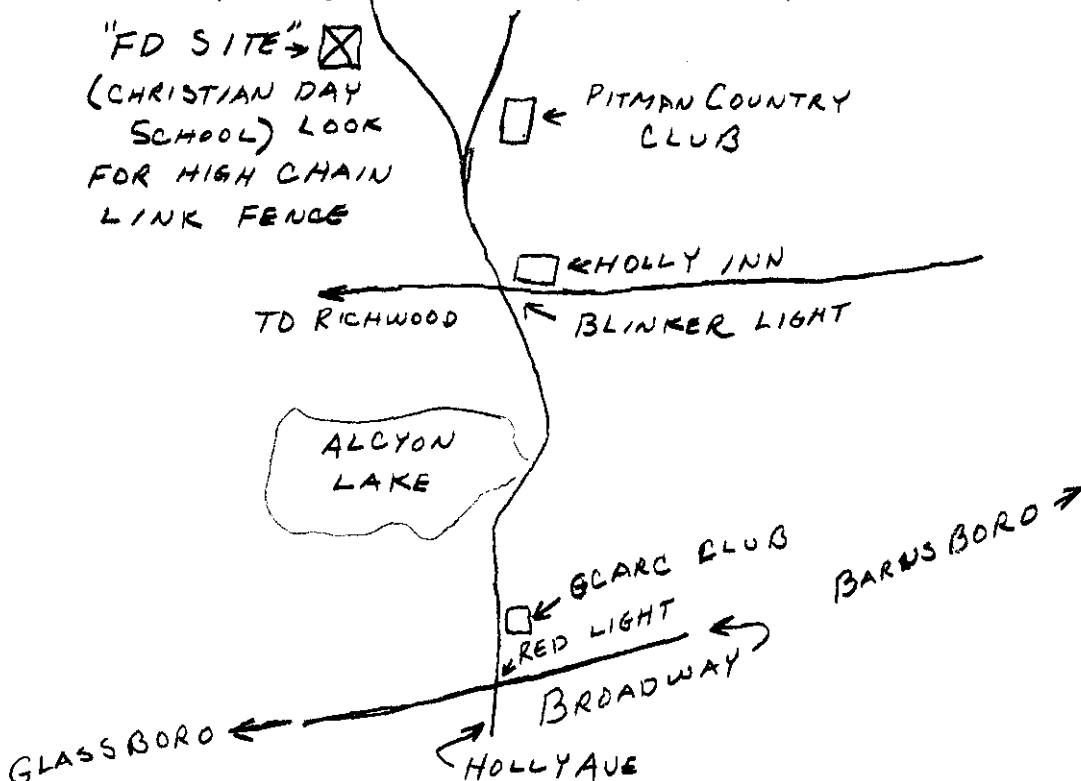 "FD SITE"
(CHRISTIAN DAY
SCHOOL) LOOK
FOR HIGH CHAIN
LINK FENCE
PITMAN COUNTRY
CLUB
HOLLY INN
TO RICHWOOD
BLINKER LIGHT
ALCYON
LAKE
GCARC CLUB
RED LIGHT
BARNSBORO
BROADWAY
GLASSBORO
HOLLY AVE